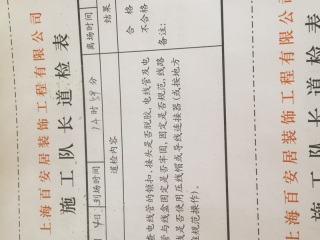 上海百安居装饰工程有限公司
施工队长巡检表
日 到场时间 14 时 59 分 离场时间
巡检内容 结果
查电线管的锁扣、接头是否脱胶，电线管及电 合格
管与线盒固定是否牢固，固定是否规范，线路 不合格
线是否使用压线帽或导线连接器（或按地方 备注：
准规范操作）。
上海百安居装饰工程有限公司
施工队长巡检表